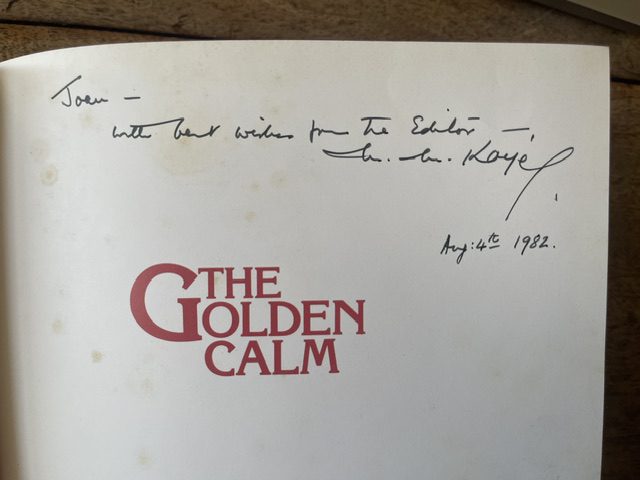 Joan —
with best wishes from the Editor —,
M. M. Kaye
Aug: 4th 1982.
THE
GOLDEN
CALM